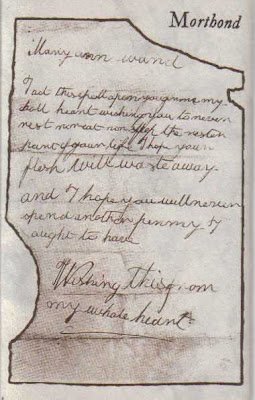 Mortbond
Mary ann ward
I act this spell upon you from my
holl heart wishing you to never
rest nor eat nor sleep the resten
part of your life I hope your
flesh will waste away
and I hope you will never
spend another penny I
ought to have
Wishing this from
my whole heart